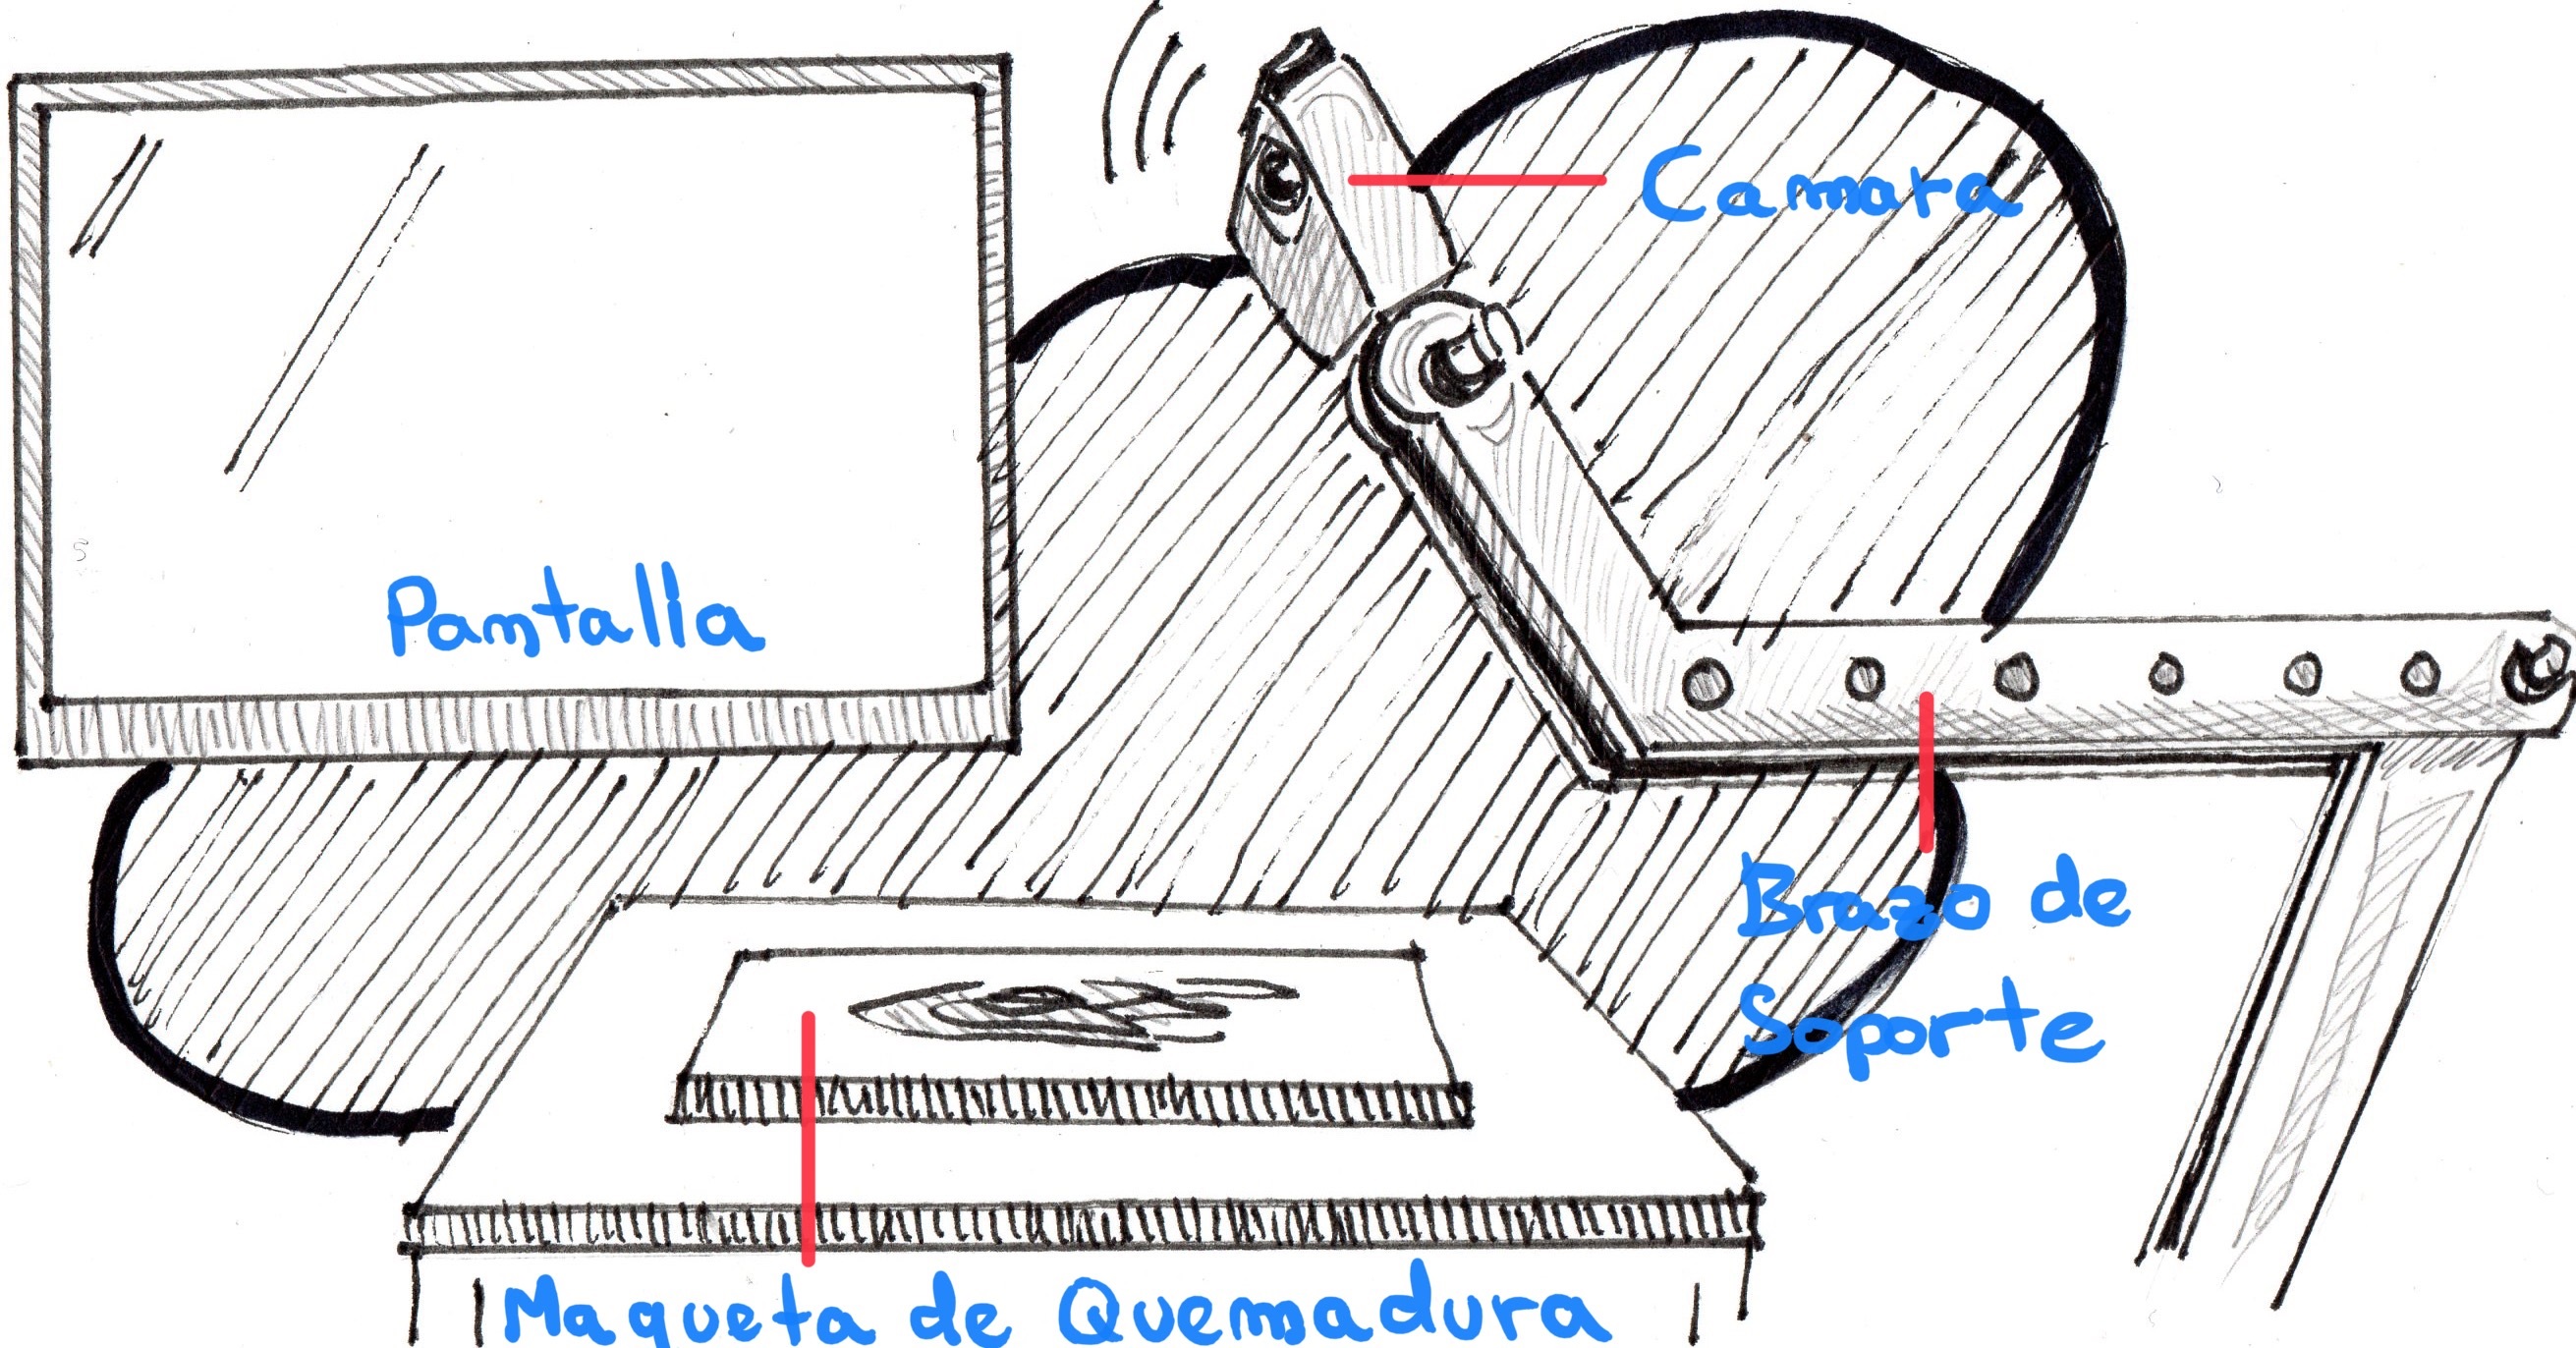 Camara
Pantalla
Brazo de
Soporte
Maqueta de Quemadura